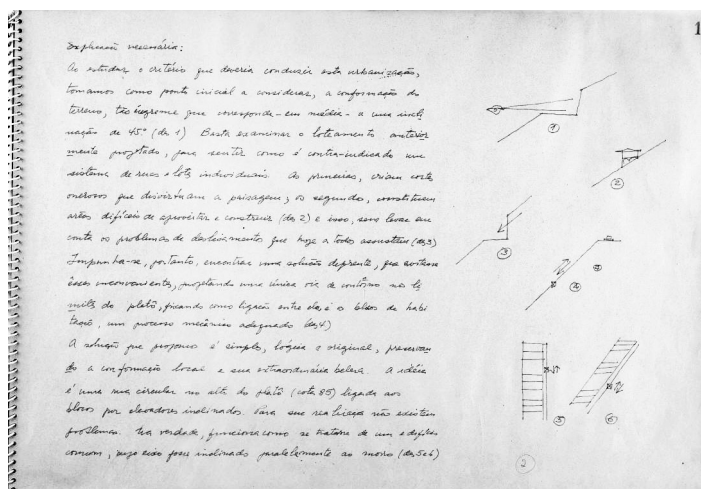 Explicação necessária:
Ao estudar o critério que deveria conduzir esta urbanização,
tomamos como ponto inicial a considerar, a conformação do
terreno, tão íngreme que corresponde - em média - a uma incli
nação de 45° (des 1) Basta examinar o loteamento anterior
mente projetado, para sentir como é contra-indicado um
sistema de ruas e lotes individuais. As primeiras, criam cortes
onerosos que desvirtuam a paisagem; os segundos, constituem
áreas difíceis de aproveitar e construir (des 2) e isso, sem levar em
conta os problemas de deslizamento que hoje a todos assustam (des 3)
Impunha-se, portanto, encontrar uma solução diferente, que evitasse
êsses inconvenientes, projetando uma única via de contôrno no li
mite do platô, ficando como ligação entre ela e o bloco de habi
tação, um processo mecânico adequado (des 4)
A solução que propomos é simples, lógica e original, preservan
do a conformação local e sua extraordinária beleza. A idéia
é uma rua circular no alto do platô (cota 85) ligada aos
blocos por elevadores inclinados. Para sua realização não existem
problemas. Na verdade, funciona como se tratasse de um edifício
comum, cujo eixo fosse inclinado paralelamente ao morro (des 5 e 6)
1
1
2
3
4
5
6
2